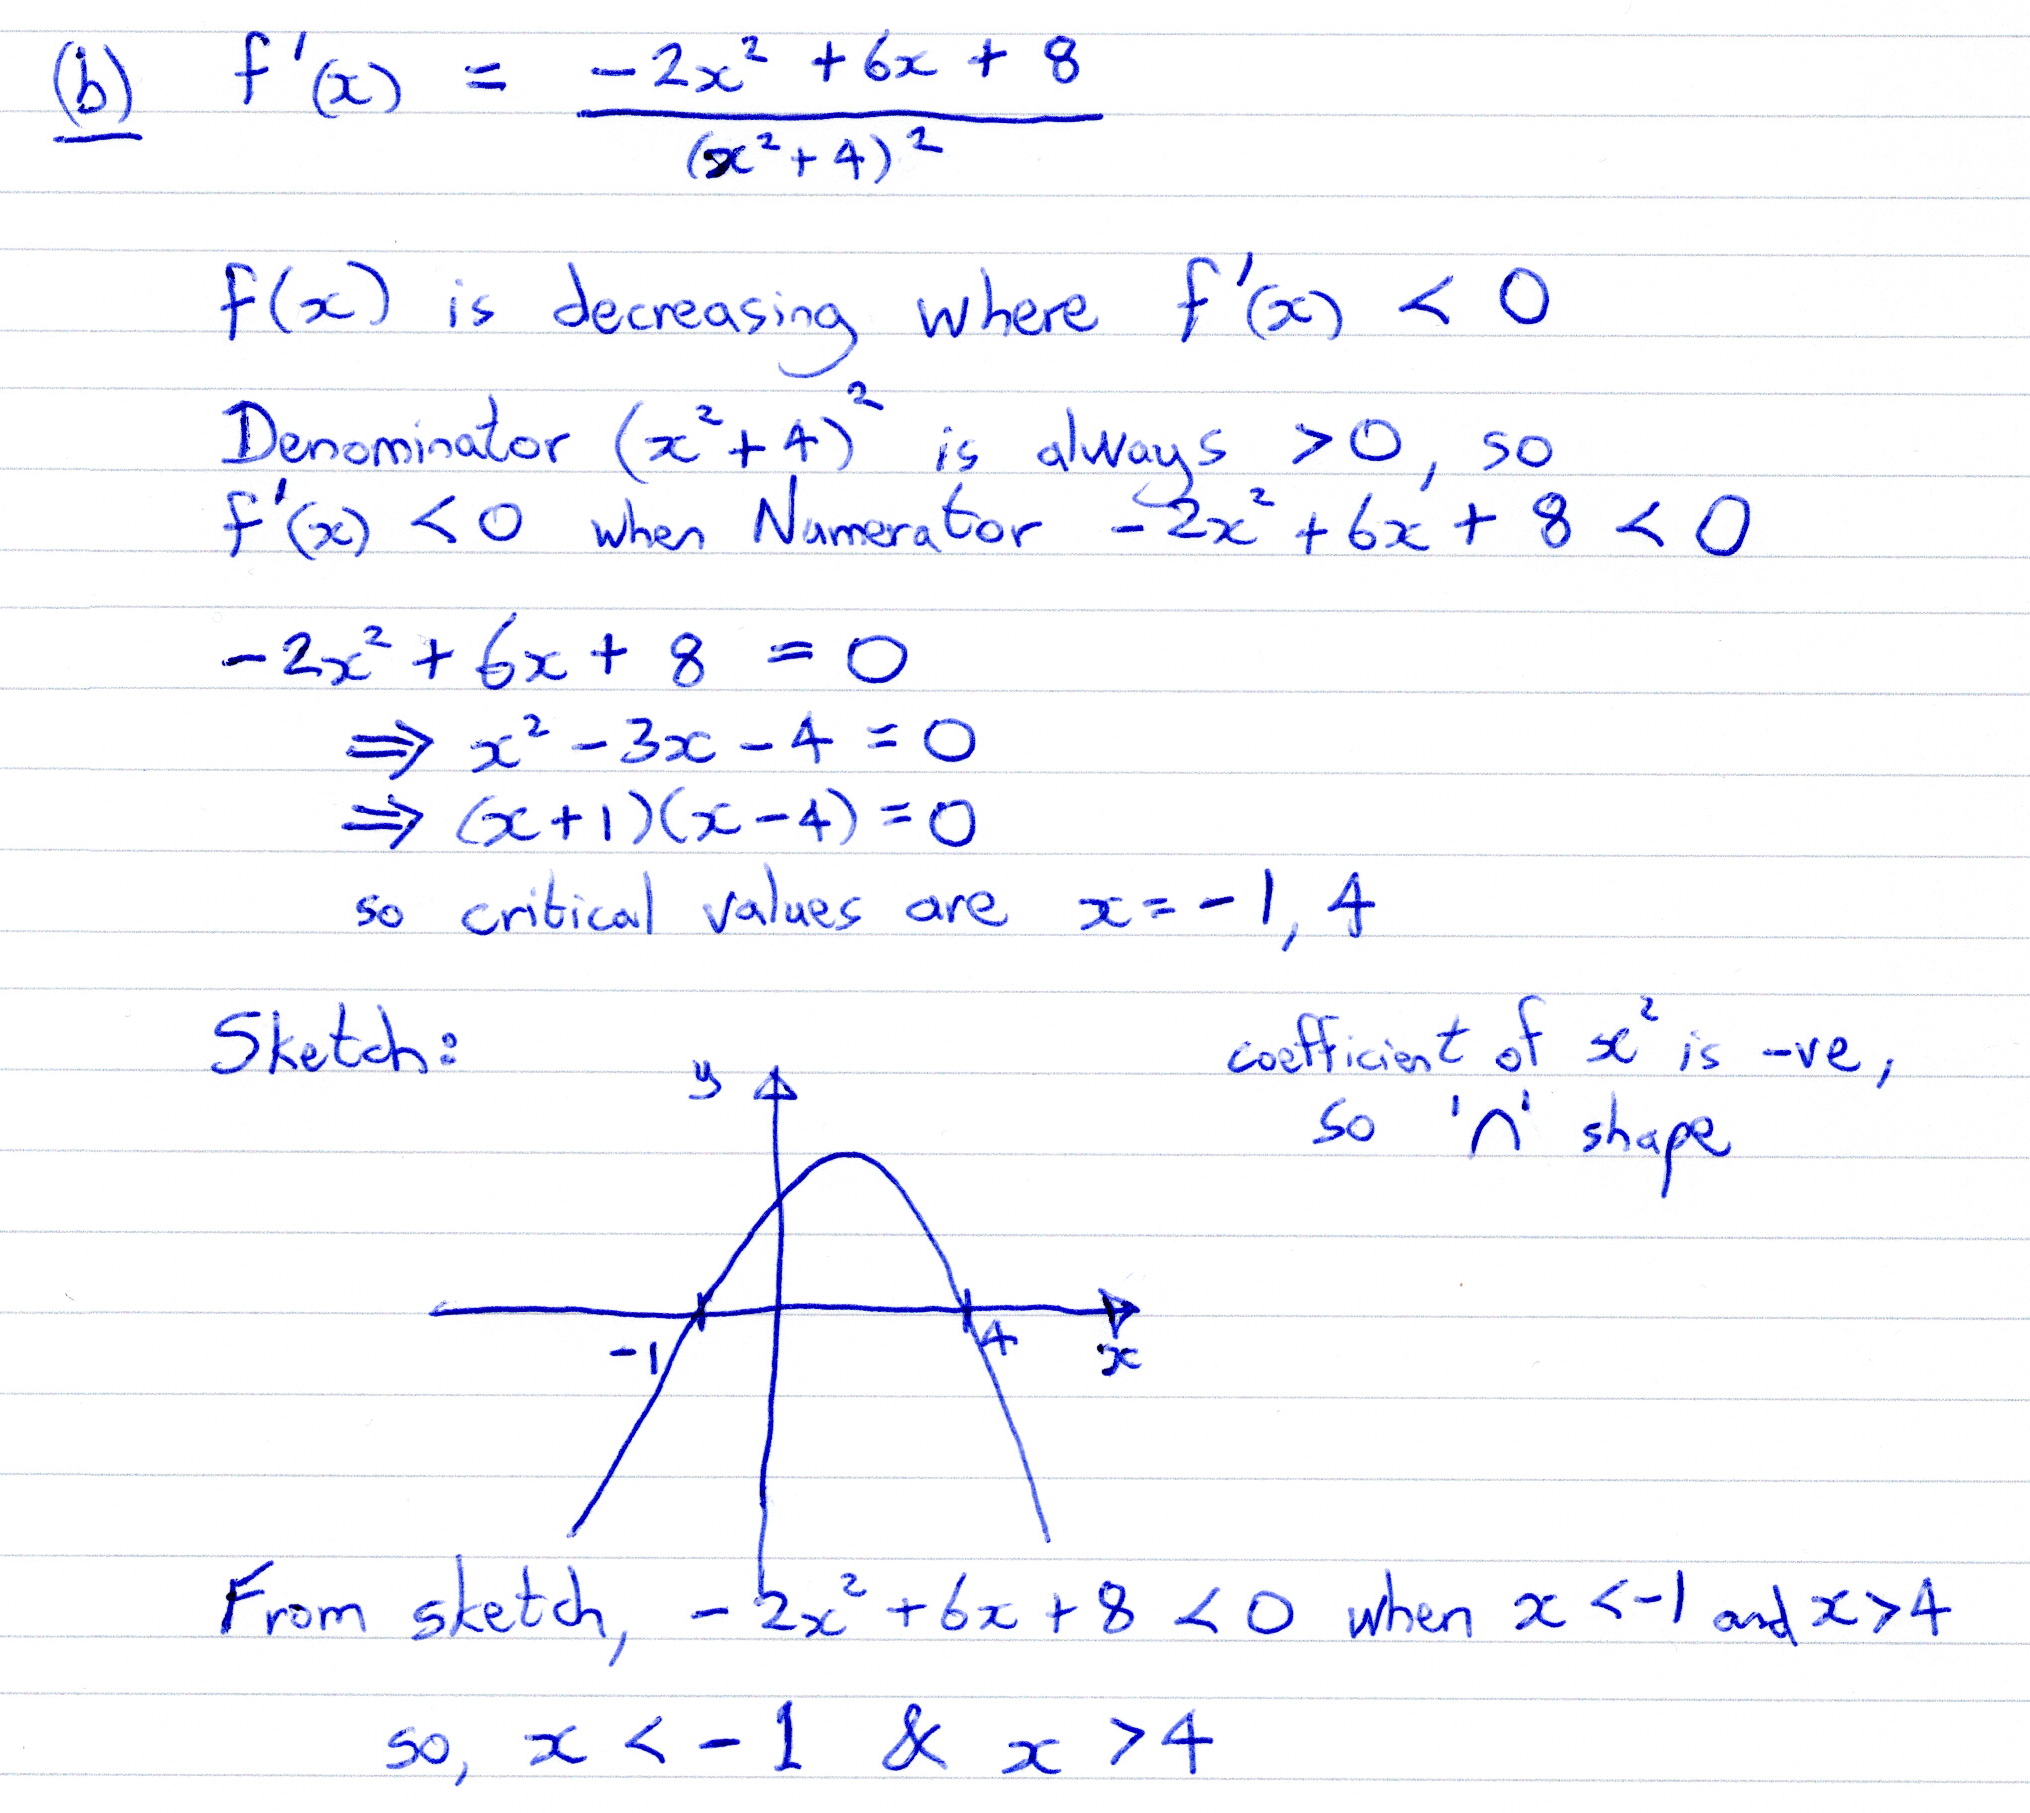 (b) f'(x) = -2x² + 6x + 8
(x² + 4)²
f(x) is decreasing where f'(x) < 0
Denominator (x² + 4)² is always > 0, so
f'(x) < 0 when Numerator -2x² + 6x + 8 < 0
-2x² + 6x + 8 = 0
⇒ x² - 3x - 4 = 0
⇒ (x+1)(x-4) = 0
so critical values are x = -1, 4
Sketch:
coefficient of x² is -ve,
so 'n' shape
y
-1
4
x
From sketch, -2x² + 6x + 8 < 0 when x < -1 and x > 4
so, x < -1 & x > 4